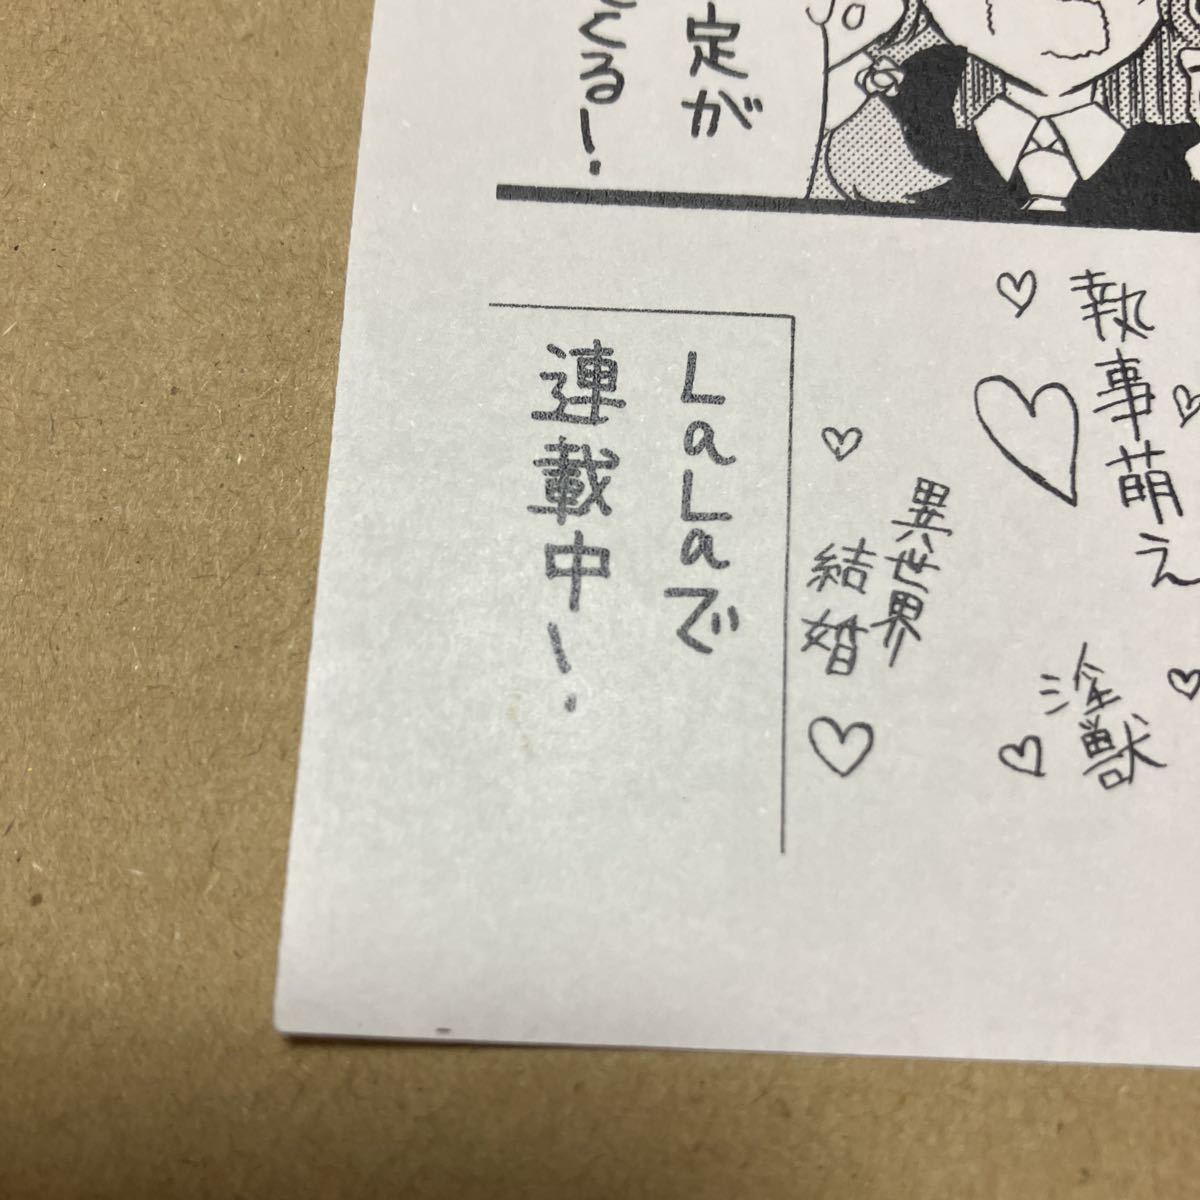 定が
くる!
執事萌え
異世界
結婚
淫獣
LaLaで
連載中!